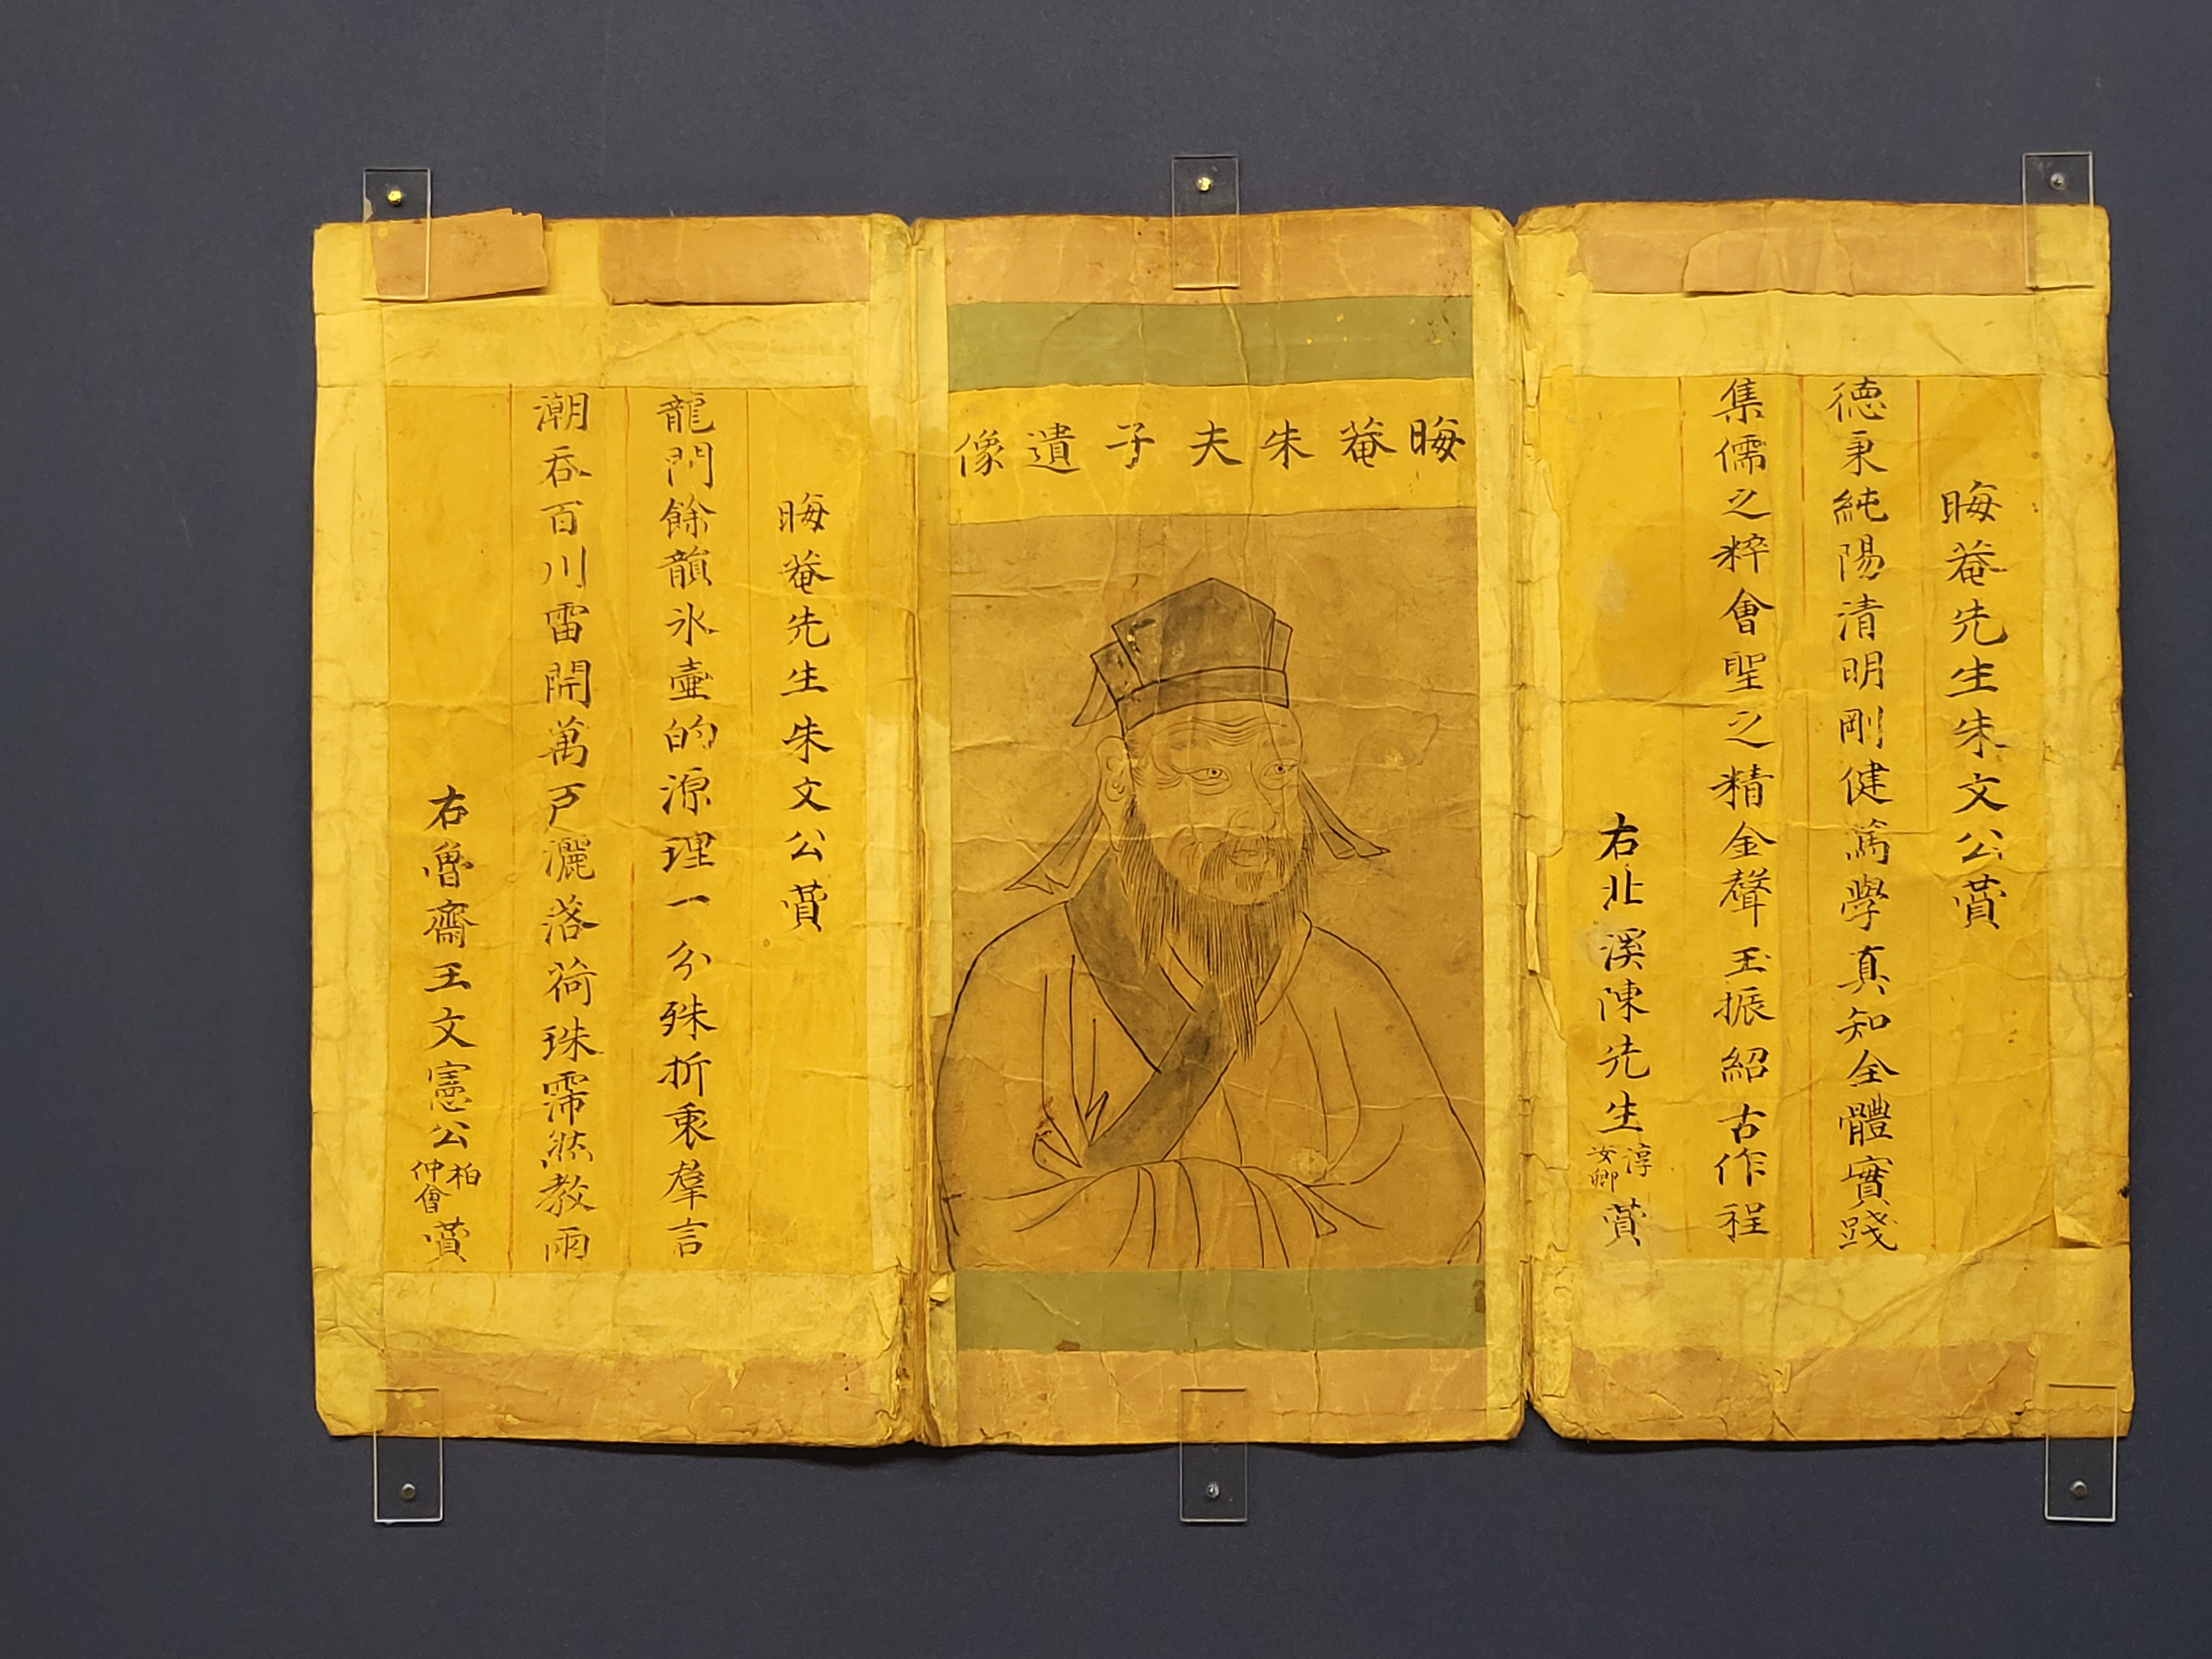 晦菴先生朱文公賛
徳秉純陽清明剛健篤學真知全體實踐
集儒之粹會聖之精金聲玉振紹古作程
右北溪陳先生淳汝卿賛
晦菴朱夫子遺像
晦菴先生朱文公賛
龍門餘韻氷壺的源理一分殊折衷羣言
潮吞百川雷開萬戶灑落荷珠霈然教雨
右魯齋王文憲公柏仲會賛